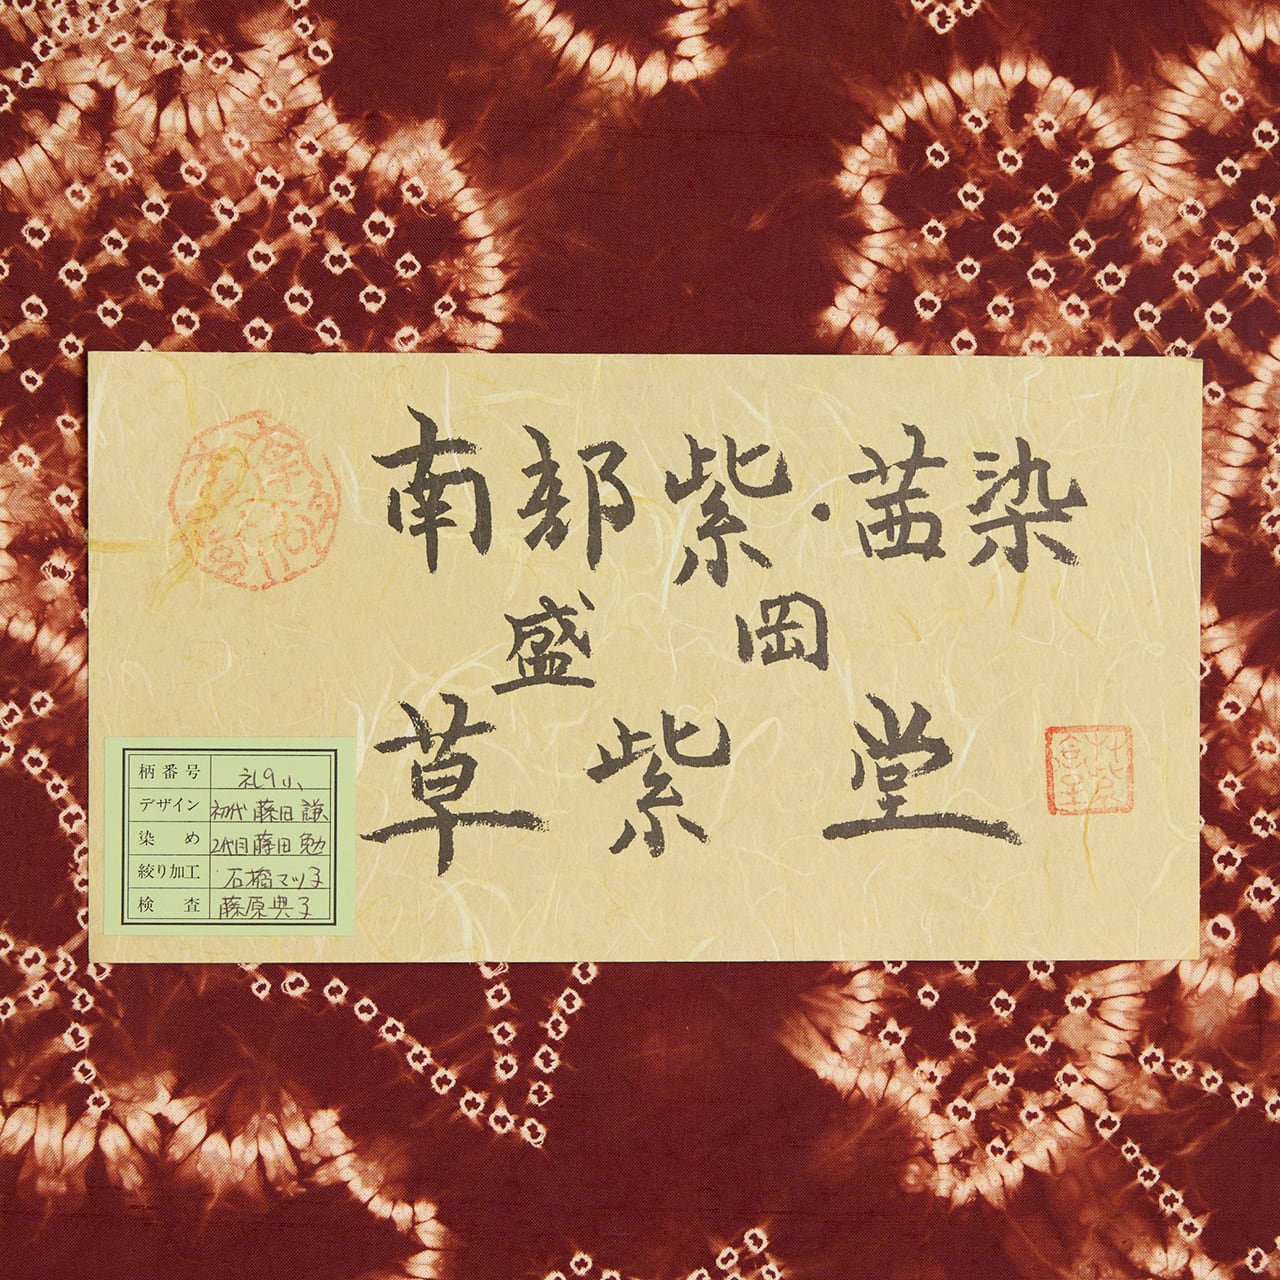 南部紫・茜染
盛岡
草紫堂
柄番号 礼9小
デザイン 初代 藤田 謙
染め 2代目 藤田 勉
絞り加工 石橋マツ子
検査 藤原典子